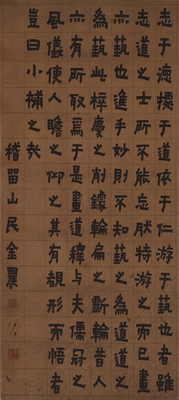 志于德于道依于仁游于藝也者雖
志道之士所不能忘肰特游之而已畫
亦藝也進乎妙則不知藝之為道道之
為藝此梓慶之削鐻輪扁之斲輪昔人
亦有所取焉于是畫道釋與夫儒冠之
風儀使人瞻之仰之其有覩形而悟者
豈曰小補之哉
稽留山民金農